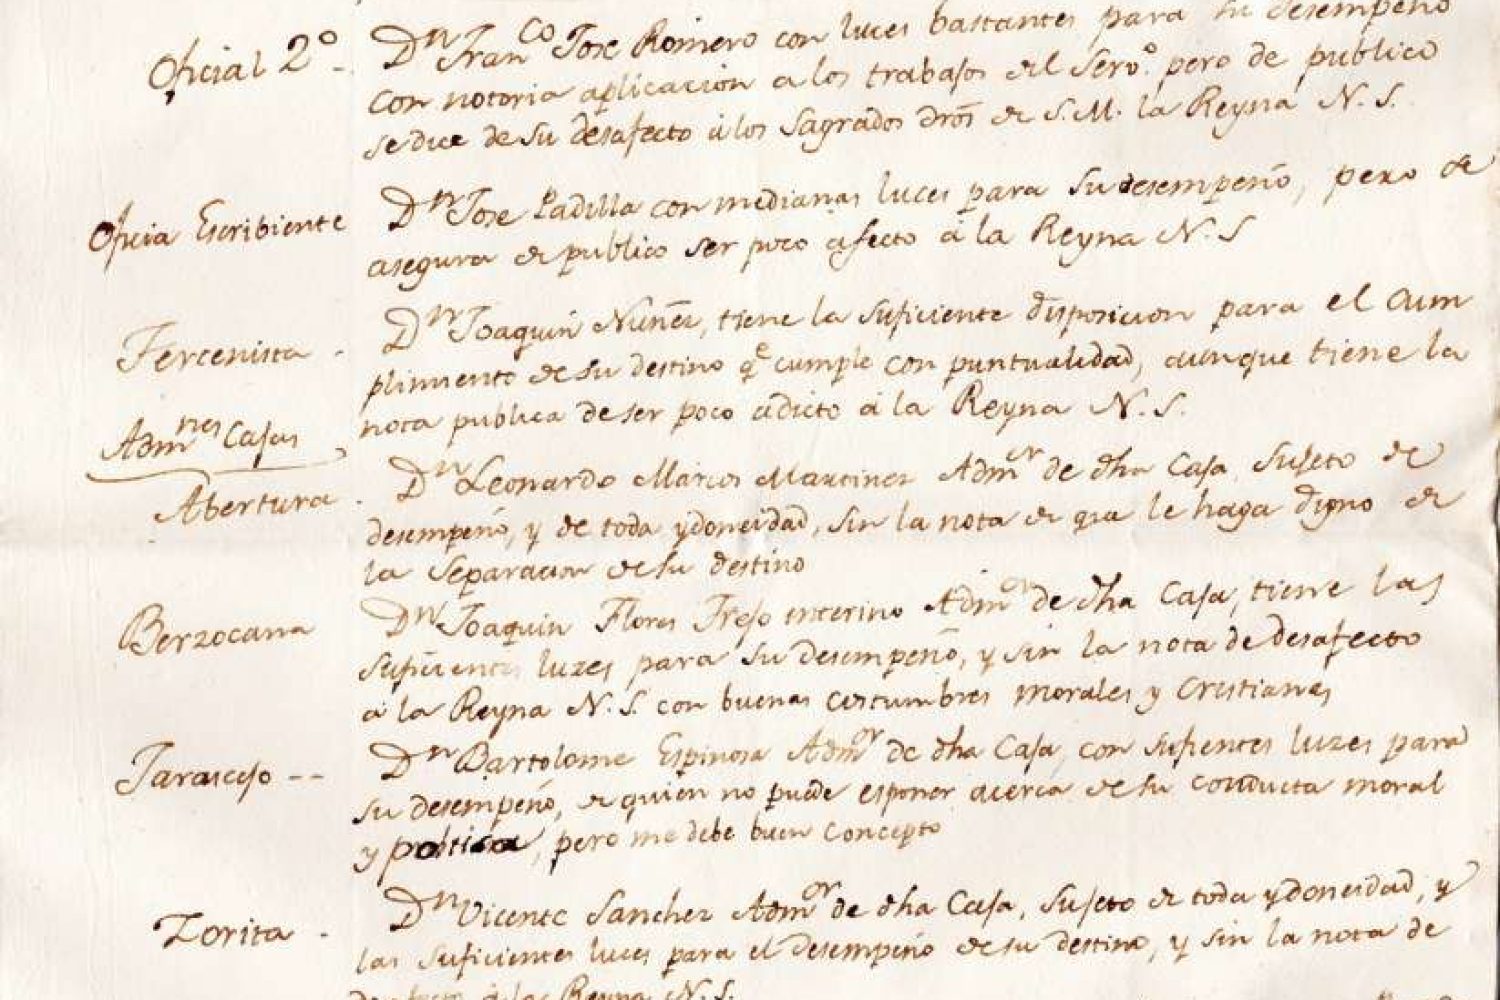 Oficial 2º Dn Franco Jose Romero con luces bastantes para su desempeño
con notoria aplicacion a los trabajos del Servo. pero de publico
se dice de su desafecto á los Sagrados dros de S.M. la Reyna N. S.
Oficia Escribiente Dn Jose Padilla con medianas luces para su desempeño, pero se
asegura de publico ser poco afecto á la Reyna N. S
Tercenista - Dn Joaquin Nuñez, tiene la suficiente disposicion para el cum
plimiento de su destino qe cumple con puntualidad, aunque tiene la
nota publica de ser poco adicto á la Reyna N. S.
Admnes Casas
Abertura - Dn Leonardo Marcos Martinez Admor de dha Casa, sujeto de
desempeño, y de toda ydoneidad, sin la nota de qra le haga digno de
la separacion de su destino
Berzocana Dn Joaquin Flores Trejo interino Admor de dha Casa, tiene las
suficientes luzes para su desempeño, y sin la nota de desafecto
á la Reyna N. S. con buenas costumbres morales y Cristianas
Jaraicejo -- Dn Bartolome Espinosa Admor de dha Casa, con sufientes luzes para
su desempeño, de quien no puede esponer acerca de su conducta moral
y politica, pero me debe buen concepto
Zorita - Dn Vicente Sanchez Admor de dha Casa, sujeto de toda ydoneidad, y
las suficientes luces para el desempeño de su destino, y sin la nota de
á la Reyna N. S.